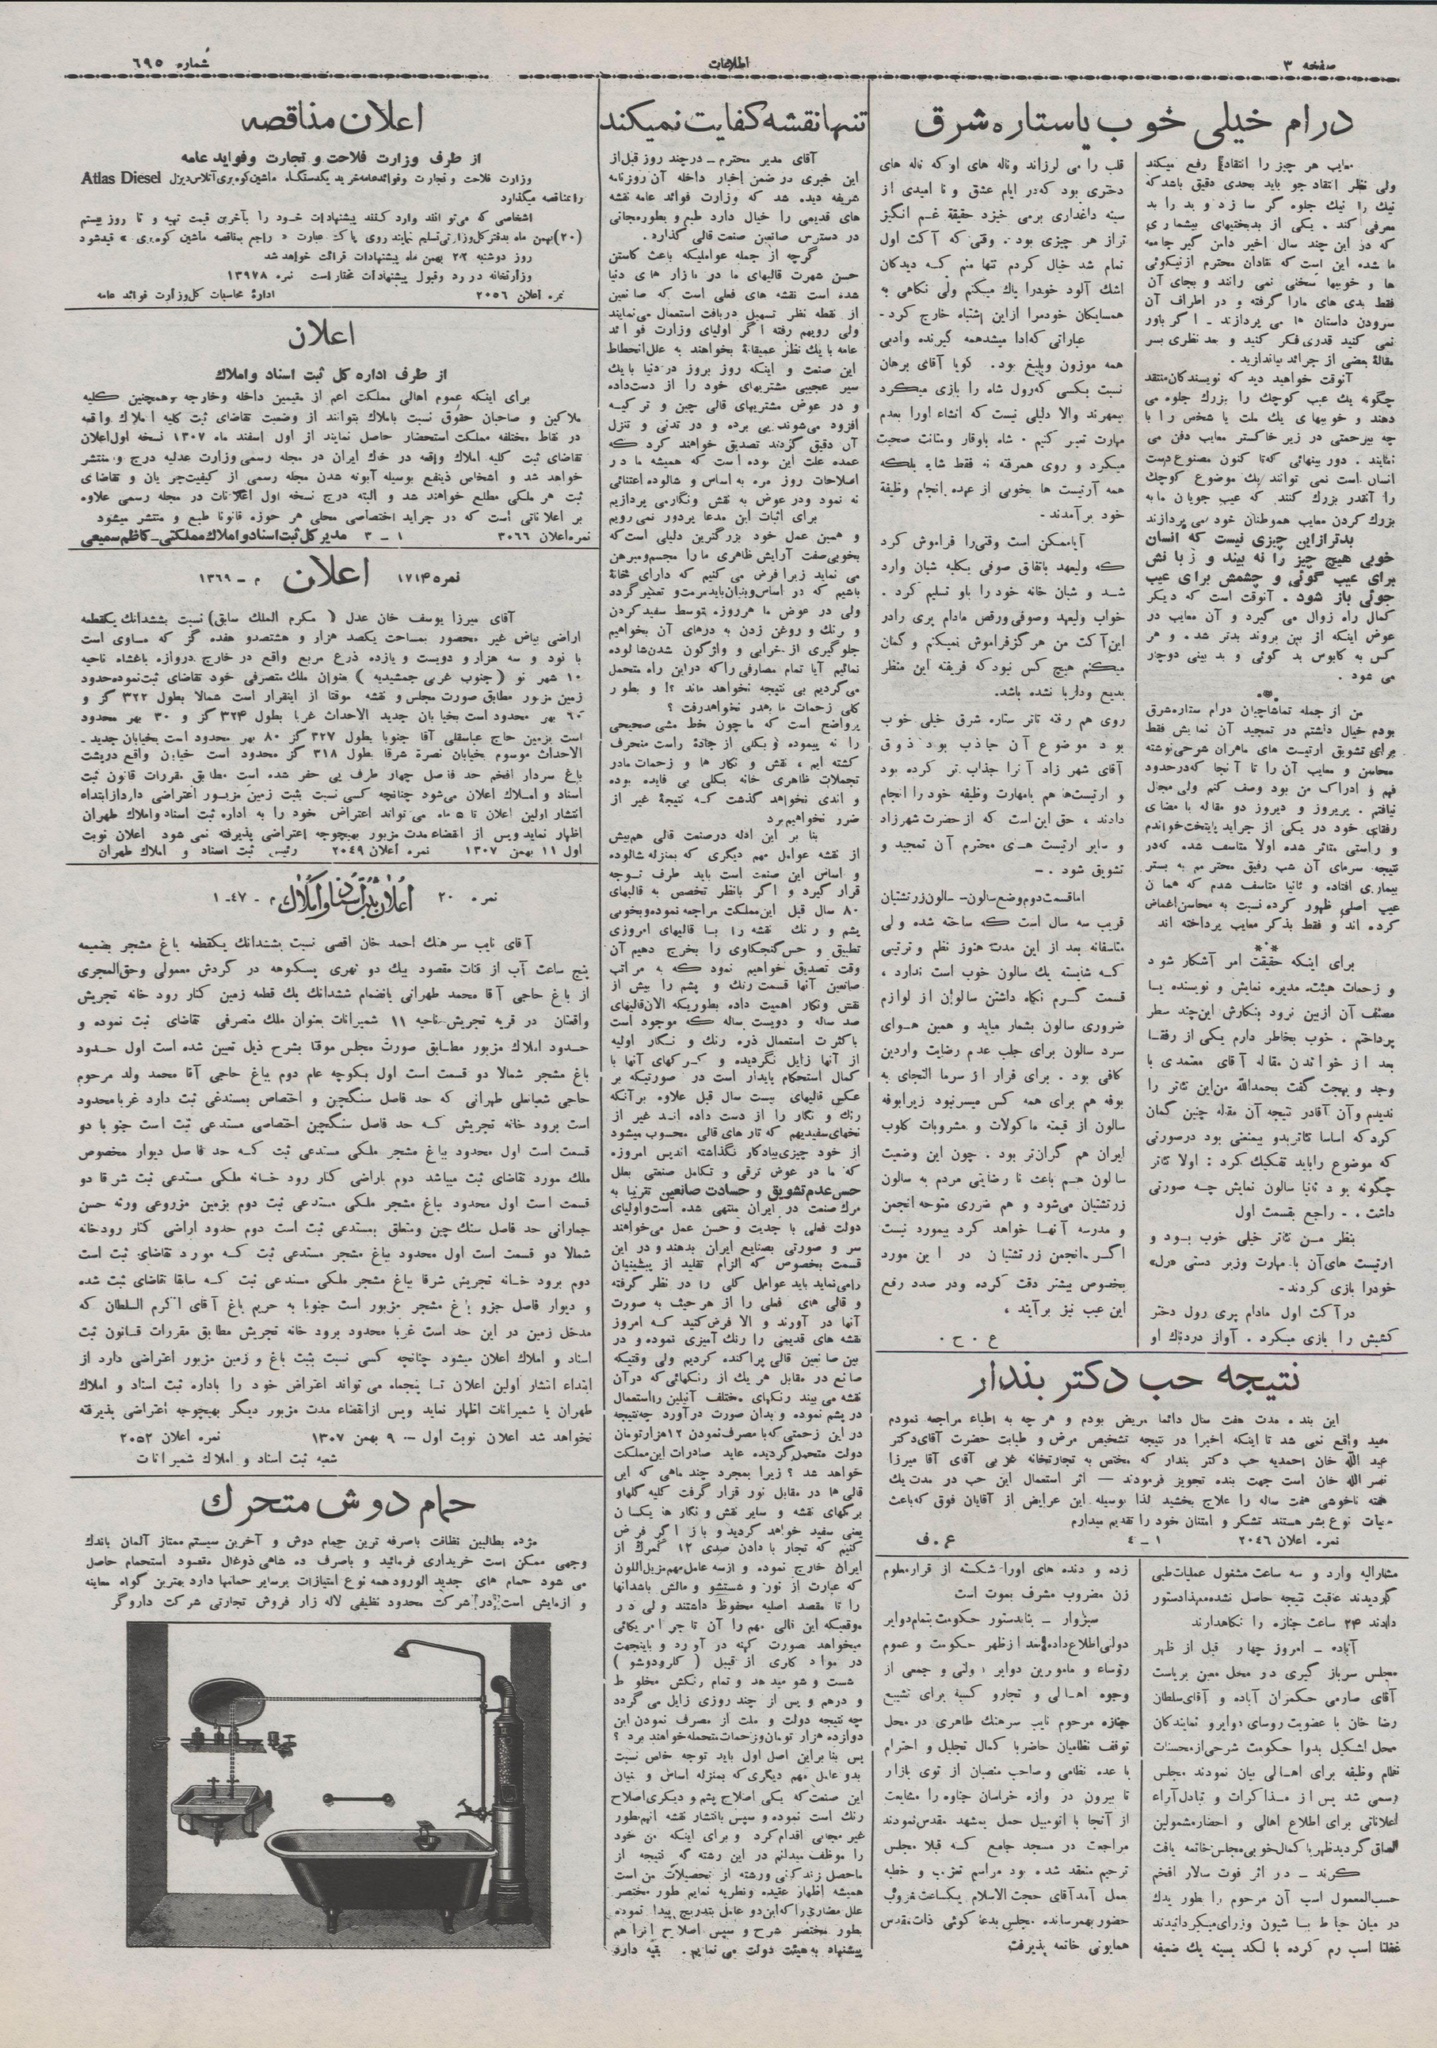 صفحه ۳
اطلاعات
شماره ۶۹۵
درام خیلی خوب یا ستاره شرق
معایب هر چیز را انتقاد رفع میکند
ولی نظر انتقاد جو باید بحدی دقیق باشد که
نیک را نیک جلوه گر سازد و بد را بد
معرفی کند . یکی از بدبختیهای بیشماری
که در این چند سال اخیر دامن گیر جامعه
ما شده این است که نقادان محترم از نیکوئی
ها و خوبیها سخنی نمی رانند و بجای آن
فقط بدی های ما را گرفته و در اطراف آن
سرودن داستان ها می پردازند ـ اگر باور
نمی کنید قدری فکر کنید و حد نظری بسر
مقاله بعضی از جرائد بیاندازید .
آنوقت خواهید دید که نویسندگان منتقد
چگونه یک عیب کوچک را بزرگ جلوه می
دهند و خوبیهای یک ملت یا شخص را با
چه بیرحمتی در زیر خاکستر معایب دفن می
نمایند . دور بینهائی که تا کنون مصنوع دست
انسان است نمی توانند یک موضوع کوچک
را آنقدر بزرگ کنند که عیب جویان ما به
بزرگ کردن معایب هموطنان خود می پردازند
بدتر از این چیزی نیست که انسان
خوبی هیچ چیز را نه بیند و زبانش
برای عیب گوئی و چشمش برای عیب
جوئی باز شود . آنوقت است که دیگر
کمال راه زوال می گیرد و آن معایب در
عوض اینکه از بین بروند بدتر شد . و هر
کس به کابوس بد گوئی و بد بینی دوچار
می شود .
من از جمله تماشاچیان درام ستاره شرق
بودم خیال داشتم در تمجید آن نمایش فقط
برای تشویق ارتیست های ماهران شرحی نوشته
محاسن و معایب آن را تا آنجا که در حدود
فهم و ادراک من بود وصف کنم ولی مجال
نیافتم . پریروز و دیروز دو مقاله با مضای
رفقای خود در یکی از جراید پایتخت خواندم
و راستی متاثر شده اولا متاسف شده که در
نتیجه سرمای آن شب رفیق محترمم به بستر
بیماری افتاده و ثانیا متاسف شدم که همان
عیب اصلی ظهور کرده نسبت به محاسن اغماض
کرده اند و فقط بذکر معایب پرداخته اند
برای اینکه حقیقت امر آشکار شود
و زحمات هیئت مدیره نمایش و نویسنده یا
مصنف آن از بین نرود بنگارش این چند سطر
پرداختم . خوب بخاطر دارم یکی از رفقا
بعد از خواندن مقاله آقای معتمدی با
وجد و بهجت گفت بحمدالله من این تئاتر را
ندیدم و آن آقا در نتیجه آن مقاله چنین گمان
کرد که اساسا تئاتر بدو بیمعنی بود در صورتی
که موضوع را باید تفکیک کرد : اولا تئاتر
چگونه بود ثانیا سالون نمایش چه صورتی
داشت . ـ راجع بقسمت اول
بنظر من تئاتر خیلی خوب بود و
ارتیست های آن با مهارت وزبر دستی «رل»
خود را بازی کردند ـ
در آکت اول مادام پری رول دختر
کشیش را بازی میکرد . آواز دردناک او
قلب را می لرزاند و ناله های او که ناله های
دختری بود که در ایام عشق و نا امیدی از
سینه داغداری برمی خیزد حقیقة غم انگیز
تر از هر چیزی بود . وقتی که آکت اول
تمام شد خیال کردم تنها منم که دیدگان
اشک آلود خود را پاک میکنم ولی نگاهی به
همسایگان خود مرا از این اشتباه خارج کرد ـ
عباراتی که ادا میشد همه گیرنده و ادبی
همه موزون و بلیغ بود . گویا آقای برهان
نسبت بکسی که رول شاه را بازی میکرد
بیمهرند والا دلیلی نیست که انشاء او را بعدم
مهارت تعبیر کنیم . شاه باوقار و متانت صحبت
میکرد و روی همرفته نه فقط شاه بلکه
همه آرتیست ها بخوبی از عهده انجام وظیفة
خود برآمدند ـ
آیا ممکن است وقتی را فراموش کرد
که ولیعهد باتفاق صوفی بکلبه شبان وارد
شد و شبان خانه خود را باو تسلیم کرد .
خواب ولیعهد و صوفی و رقص مادام پری را در
این آکت من هرگز فراموش نمیکنم و گمان
میکنم هیچ کس نبود که فریفته این منظر
بدیع و دلربا نشده باشد .
روی هم رفته تاتر ستاره شرق خیلی خوب
بود موضوع آن جاذب بود ذوق
آقای شهر زاد آنرا جذاب تر کرده بود
و ارتیست ها هم بامهارت وظیفه خود را انجام
دادند ، حق این است که از حضرت شهرزاد
و سایر ارتیست های محترم آن تمجید و
تشویق شود . ـ
اما قسمت دوم وضع سالون ـ سالون زرتشتیان
قریب سه سال است که ساخته شده ولی
متاسفانه بعد از این مدت هنوز نظم و ترتیبی
که شایسته یک سالون خوب است ندارد ،
قسمت گرم نگاه داشتن سالون از لوازم
ضروری سالون بشمار میاید و همین هوای
سرد سالون برای جلب عدم رضایت واردین
کافی بود . برای فرار از سرما التجای به
بوفه هم برای همه کس میسر نبود زیرا بوفه
سالون از قیمته ماکولات و مشروبات کلوب
ایران هم گران تر بود . چون این وضعیت
سالون هم باعث نارضایتی مردم به سالون
زرتشتیان می شود و هم ضرری متوجه انجمن
و مدرسه آنها خواهد کرد بیمورد نیست
اگر انجمن زرتشتیان در این مورد
بخصوص بیشتر دقت کرده و در صدد رفع
این عیب نیز برآیند ،
ع . ح .
نتیجه حب دکتر بندار
این بنده . مدت هفت سال دائما مریض بودم و هر چه به اطباء مراجعه نمودم
مفید واقع نمی شد تا اینکه اخیرا در نتیجه تشخیص مرض و طبابت حضرت آقای دکتر
عبد الله خان احمدیه حب دکتر بندار که مختص به تجارتخانه غربی آقای آقا میرزا
نصر الله خان است جهت بنده تجویز فرمودند — اثر استعمال این حب در مدت یک
هفته ناخوشی هفت ساله را علاج بخشید لذا بوسیله این عرایض از آقایان فوق که باعث
حیات نوع بشر هستند تشکر و امتنان خود را تقدیم میدارم
نمره اعلان ۲۰۴۶
۱ ـ ۴
ع . ف
مشارالیه وارد و سه ساعت مشغول عملیات طبی
گردیدند عاقبت نتیجه حاصل نشده معهذا دستور
دادند ۲۴ ساعت جنازه را نگاهدارند
آباده ـ امروز چهار قبل از ظهر
مجلس سرباز گیری در محل معین بریاست
آقای صارمی حکمران آباده و آقای سلطان
رضا خان با عضویت روسای دوایر و نمایندگان
محل تشکیل بدوا حکومت شرحی از محسنات
نظام وظیفه برای اهالی بیان نمودند مجلس
رسمی شد پس از مذاکرات و تبادل آراء
اعلاناتی برای اطلاع اهالی و احضار مشمولین
الصاق گردید ظهر با کمال خوبی مجلس خاتمه یافت
کرند ـ در اثر فوت سالار افخم
حسب المعمول اسب آن مرحوم را بطور یدک
در میان حیاط با شیون وزرای میگردانیدند
غفلتا اسب رم کرده با لگد بسینه یک ضعیفه
زده و دنده های او را شکسته از قرار معلوم
زن مضروب مشرف بموت است
سبزوار ـ بنا بدستور حکومت بتمام دوایر
دولتی اطلاع داده بعد از ظهر حکومت و عموم
رؤساء و مامورین دوایر دولتی و جمعی از
وجوه اهالی و تجار و کسبه برای تشییع
جنازه مرحوم نایب سرهنگ طاهری در محل
توقف نظامیان حاضر با کمال تجلیل و احترام
با عده نظامی و صاحب منصبان از توی بازار
تا بیرون دروازه خراسان جنازه را مشایعت
از آنجا با اتومبیل حمل بمشهد مقدس نمودند
مراجعت در مسجد جامع که قبلا مجلس
ترحیم منعقد شده بود مراسم تعزیت و خطبه
بعمل آمد آقای حجت الاسلام یکساعت بغروب
حضور بهمرسانده مجلس بدعا گوئی ذات مقدس
همایونی خاتمه پذیرفت
تنها نقشه کفایت نمیکند
آقای مدیر محترم ـ در چند روز قبل از
این خبری در ضمن اخبار داخله آن روزنامه
شریفه دیده شد که وزارت فوائد عامه نقشه
های قدیمی را خیال دارد طبع و بطور مجانی
در دسترس صانعین صنعت قالی گذارد .
گرچه از جمله عواملیکه باعث کاستن
حسن شهرت قالیهای ما در بازار های دنیا
شده است نقشه های فعلی است که صانعین
از نقطه نظر تسهیل در بافت استعمال می نمایند
ولی رویهم رفته اگر اولیای وزارت فوائد
عامه با یک نظر عمیقانه بخواهند به علل انحطاط
این صنعت و اینکه روز بروز در دنیا با یک
سیر عجیبی مشتریهای خود را از دست داده
و در عوض مشتریهای قالی چین و ترکیه
افزود می شوند پی برده و در تدنی و تنزل
آن دقیق گردند تصدیق خواهند کرد که
عمده علت این بوده است که همیشه ما در
اصلاحات روز مره به اساس و شالوده اعتنائی
نه نمود و در عوض به نقش و نگار می پردازیم
برای اثبات این مدعا پر دور نمی رویم
و همین عمل خود بزرگترین دلیلی است که
بخوبی صفت آرایش ظاهری ما را مجسم و مبرهن
می نماید زیرا فرض می کنیم که دارای خانة
باشیم که در اساس و بنیان باید مرمت و تعمیر گردد
ولی در عوض ما هر روزه بتوسط سفید کردن
و رنگ و روغن زدن به درهای آن بخواهیم
جلوگیری از خرابی و واژگون شدن شالوده
نمائیم آیا تمام مصارفی را که در این راه متحمل
می گردیم بی نتیجه نخواهد ماند ؟! و بطور
کلی زحمات ما بهدر نخواهد رفت ؟
پر واضح است که ما چون خط مشی صحیحی
را نه پیموده و بکلی از جادة راست منحرف
گشته ایم ، نقش و نگار ها و زحمات ما در
تجملات ظاهری خانه بکلی بی فایده بوده
و اندی نخواهد گذشت که نتیجة غیر از
ضرر نخواهیم برد
بنا بر این ادله در صنعت قالی هم بیش
از نقشه عوامل مهم دیگری که بمنزله شالوده
و اساس این صنعت است باید طرف توجه
قرار گیرد و اگر بانظر تخصص به قالیهای
۸۰ سال قبل این مملکت مراجعه نموده و بخوبی
پشم و رنگ نقشه را با قالیهای امروزی
تطبیق و حس کنجکاوی را بخرج دهیم آن
وقت تصدیق خواهیم نمود که به مراتب
صانعین آنها قسمت رنگ و پشم را بیش از
نقش و نگار اهمیت داده بطوریکه الان قالیهای
صد ساله و دویست ساله که موجود است
باکثرت استعمال ذره رنگ و نگار اولیه
از آنها زایل نگردیده و کرکهای آنها با
کمال استحکام پایدار است در صورتیکه بر
عکس قالیهای بیست سال قبل علاوه بر آنکه
رنگ و نگار را از دست داده اند غیر از
نخهای سفیدیهم که تار های قالی محسوب میشود
از خود چیزی بیادگار نگذاشته اند پس امروزه
که ما در عوض ترقی و تکامل صنعتی بعلل
حس عدم تشویق و حسادت صانعین تقریبا به
مرگ صنعت در ایران منتهی شده است و اولیای
دولت فعلی با جدیت و حسن عمل می خواهند
سر و صورتی بصنایع ایران بدهند و در این
قسمت بخصوص که الزام تقلید از پیشینیان
را می نماید باید عوامل کلی را در نظر گرفته
و قالی های فعلی را از هر حیث به صورت
آنها در آورند و الا فرض کنید که امروز
نقشه های قدیمی را رنگ آمیزی نموده و در
بین صانعین قالی پراکنده کردیم ولی وقتیکه
صانع در مقابل هر یک از رنگهائی که در آن
نقشه می بیند رنگهای مختلف آنیلین را استعمال
در پشم نموده و بدان صورت در آورد چه نتیجه
در این زحمتی که با مصرف نمودن ۱۲ هزار تومان
دولت متحمل گردیده عاید صادرات این مملکت
خواهد شد ؟ زیرا بمجرد چند ماهی که این
قالی ها در مقابل نور قرار گرفت کلیه گلها و
برگهای نقشه و سایر نقش و نگار ها یکسان
یعنی سفید خواهد گردید و باز اگر فرض
کنیم که تجار با دادن صدی ۱۲ گمرک از
ایران خارج نموده و از سه عامل مهم مزیل اللون
که عبارت از نور و شستشو و مالش باشد آنها
را تا مقصد اصلیه محفوظ داشتند ولی در
موقعیکه این قالی مهم را آن تاجر امریکائی
میخواهد صورت کهنه در آورد و باینجهت
در مواد کاری از قبیل ( کلرودوشو )
شست و شو میدهد و تمام رنگش مخلوط
و درهم و پس از چند روزی زایل می گردد
چه نتیجه دولت و ملت از مصرف نمودن این
دوازده هزار تومان و زحمات متحمله خواهند برد ؟
پس بنا براین اصل اول باید توجه خاص نسبت
بدو عامل مهم دیگری که بمنزله اساس و بنیان
این صنعت که یکی اصلاح پشم و دیگری اصلاح
رنگ است نموده و سپس بانتشار نقشه آنهم بطور
غیر مجانی اقدام کرد و برای اینکه من خود
را موظف میدانم در این رشته که نتیجه از
ماحصل زندگانی و رشته از تحصیلات من است
همیشه اظهار عقیده و نظریه نمایم بطور مختصر
علل مضاری را که این دو عامل بتدریج پیدا نموده
بطور مختصر شرح و سپس اصلاح آنرا هم
پیشنهاد به هیئت دولت می نمایم . بقیه دارد
اعلان مناقصه
از طرف وزارت فلاحت و تجارت و فواید عامه
وزارت فلاحت و تجارت و فوائد عامه خرید یکدستگاه ماشین کوه بری آتلاس دیزل Atlas Diesel
را مناقصه میگذارد
اشخاصی که می توانند وارد کنند پیشنهادات خود را بآخرین قیمت تهیه و تا روز بیستم
(۲۰) بهمن ماه بدفتر کل وزارتی تسلیم نمایند روی پاکت عبارت « راجع بمناقصه ماشین کوه بری » قید شود
روز دوشنبه ۲۲ بهمن ماه پیشنهادات قرائت خواهد شد
وزارتخانه در رد و قبول پیشنهادات مختار است نمره ۱۳۹۷۸
نمره اعلان ۲۰۵۶
ادارة محاسبات کل وزارت فوائد عامه
اعلان
از طرف اداره کل ثبت اسناد و املاک
برای اینکه عموم اهالی مملکت اعم از مقیمین داخله و خارجه و همچنین کلیه
ملاکین و صاحبان حقوق نسبت باملاک بتوانند از وضعیت تقاضای ثبت کلیه املاک واقعه
در نقاط مختلفه مملکت استحضار حاصل نمایند از اول اسفند ماه ۱۳۰۷ نسخه اول اعلان
تقاضای ثبت کلیه املاک واقعه در خاک ایران در مجله رسمی وزارت عدلیه درج و منتشر
خواهد شد و اشخاص ذینفع بوسیله آبونه شدن مجله رسمی از کیفیت جریان و تقاضای
ثبت هر ملکی مطلع خواهند شد و البته درج نسخه اول اعلانات در مجله رسمی علاوه
بر اعلاناتی است که در جراید اختصاصی محلی هر حوزه قانونا طبع و منتشر میشود
نمره اعلان ۳۰۶۶
۱ ـ ۳ مدیر کل ثبت اسناد و املاک مملکتی ـ کاظم سمیعی
نمره ۱۷۱۴
اعلان
م ـ ۱۳۶۹
آقای میرزا یوسف خان عدل ( مکرم الملک سابق ) نسبت بششدانگ یکقطعه
اراضی بیاض غیر محصور بمساحت یکصد هزار و هشتصد و هفده گز که مساوی است
با نود و سه هزار و دویست و یازده ذرع مربع واقع در خارج دروازه باغشاه ناحیه
۱۰ شهر نو ( جنوب غربی جمشیدیه ) بعنوان ملک متصرفی خود تقاضای ثبت نموده حدود
زمین مزبور مطابق صورت مجلس و نقشه موقتا از اینقرار است شمالا بطول ۳۲۲ گز و
۶۰ بهر محدود است بخیابان جدید الاحداث غربا بطول ۳۲۴ گز و ۳۰ بهر محدود
است بزمین حاج عباسقلی آقا جنوبا بطول ۳۲۷ گز ۸۰ بهر محدود است بخیابان جدید ـ
الاحداث موسوم بخیابان نصرة شرقا بطول ۳۱۸ گز محدود است خیابان واقع در پشت
باغ سردار افخم حد فاصل چهار طرف پی حفر شده است مطابق مقررات قانون ثبت
اسناد و املاک اعلان می شود چنانچه کسی نسبت بثبت زمین مزبور اعتراضی دارد از ابتداء
انتشار اولین اعلان تا ۵ ماه می تواند اعتراض خود را به اداره ثبت اسناد و املاک طهران
اظهار نماید و پس از انقضاء مدت مزبور بهیچوجه اعتراضی پذیرفته نمی شود اعلان نوبت
اول ۱۱ بهمن ۱۳۰۷ نمره اعلان ۲۰۴۹ رئیس ثبت اسناد و املاک طهران
نمره ۲۰
اعلان ثبت اسناد و املاک
م ـ ۴۷ـ ۱
آقای نایب سرهنگ احمد خان اقصی نسبت بششدانگ یکقطعه باغ مشجر بضمیمه
پنج ساعت آب از قنات مقصود بیک دو نهری پسکوهه در گردش معمولی و حق المجری
از باغ حاجی آقا محمد طهرانی بانضمام ششدانگ یک قطعه زمین کنار رود خانه تجریش
واقعتان در قریه تجریش ناحیه ۱۱ شمیرانات بعنوان ملک متصرفی تقاضای ثبت نموده و
حدود املاک مزبور مطابق صورت مجلس موقتا بشرح ذیل تعیین شده است اول حدود
باغ مشجر شمالا دو قسمت است اول بکوچه عام دوم بباغ حاجی آقا محمد ولد مرحوم
حاجی شعبانعلی طهرانی که حد فاصل سنگچین و اختصاص بمستدعی ثبت دارد غربا محدود
است برود خانه تجریش که حد فاصل سنگچین اختصاصی مستدعی ثبت است جنوبا دو
قسمت است اول محدود بباغ مشجر ملکی مستدعی ثبت که حد فاصل دیوار مخصوص
ملک مورد تقاضای ثبت میباشد دوم باراضی کنار رود خانه ملکی مستدعی ثبت شرقا دو
قسمت است اول محدود بباغ مشجر ملکی مستدعی ثبت دوم بزمین مزروعی ورثه حسن
جمارانی حد فاصل سنگ چین ومتعلق بمستدعی ثبت است دوم حدود اراضی کنار رودخانه
شمالا دو قسمت است اول محدود بباغ مشجر مستدعی ثبت که مورد تقاضای ثبت است
دوم برود خانه تجریش شرقا بباغ مشجر ملکی مستدعی ثبت که سابقا تقاضای ثبت شده
و دیوار فاصل جزو باغ مشجر مزبور است جنوبا به حریم باغ آقای اکرم السلطان که
مدخل زمین در این حد است غربا محدود برود خانه تجریش مطابق مقررات قانون ثبت
اسناد و املاک اعلان میشود چنانچه کسی نسبت بثبت باغ و زمین مزبور اعتراضی دارد از
ابتداء انتشار اولین اعلان تا پنجماه می تواند اعتراض خود را باداره ثبت اسناد و املاک
طهران یا شمیرانات اظهار نماید وپس از انقضاء مدت مزبور دیگر بهیچوجه اعتراضی پذیرفته
نخواهد شد اعلان نوبت اول ـ ۹ بهمن ۱۳۰۷ نمره اعلان ۲۰۵۲
شعبه ثبت اسناد و املاک شمیرانات
حمام دوش متحرک
مژده بطالبین نظافت باصرفه ترین حمام دوش و آخرین سیستم ممتاز آلمان باندک
وجهی ممکن است خریداری فرمائید و باصرف ده شاهی ذوغال مقصود استحمام حاصل
می شود حمام های جدید الورود همه نوع امتیازات برسایر حمامها دارد بهترین گواه معاینه
و ازمایش است در شرکت محدود نظیفی لاله زار فروش تجارتی شرکت داروگر